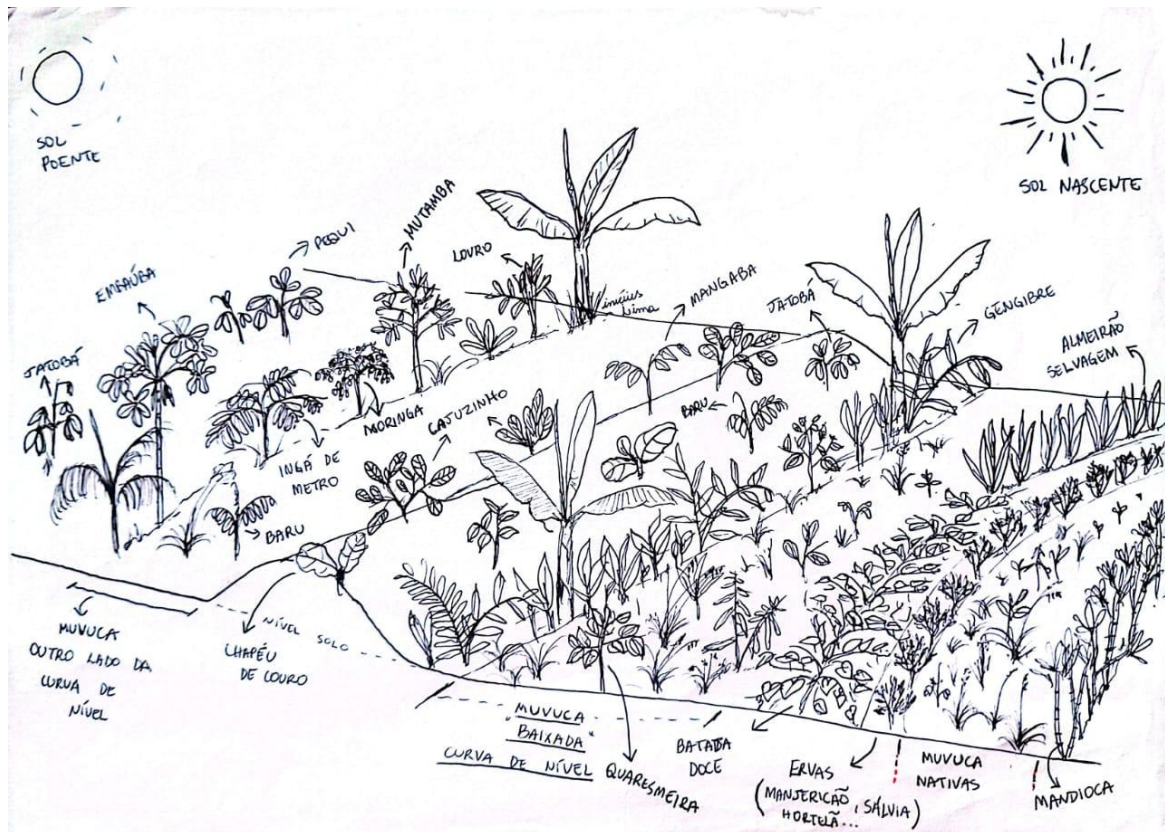 SOL
POENTE
SOL NASCENTE
PEQUI
MUTAMBA
LOURO
EMBAÚBA
MANGABA
JATOBÁ
GENGIBRE
ALMEIRÃO
SELVAGEM
JATOBÁ
Vinícius
Lima
MORINGA
CAJUZINHO
BARU
INGÁ DE
METRO
BARU
NÍVEL SOLO
MUVUCA
OUTRO LADO DA
CURVA DE
NÍVEL
CHAPÉU
DE COURO
MUVUCA
"BAIXADA"
CURVA DE NÍVEL
QUARESMEIRA
BATATA
DOCE
ERVAS
(MANJERICÃO, SÁLVIA)
HORTELÃ...
MUVUCA
NATIVAS
MANDIOCA